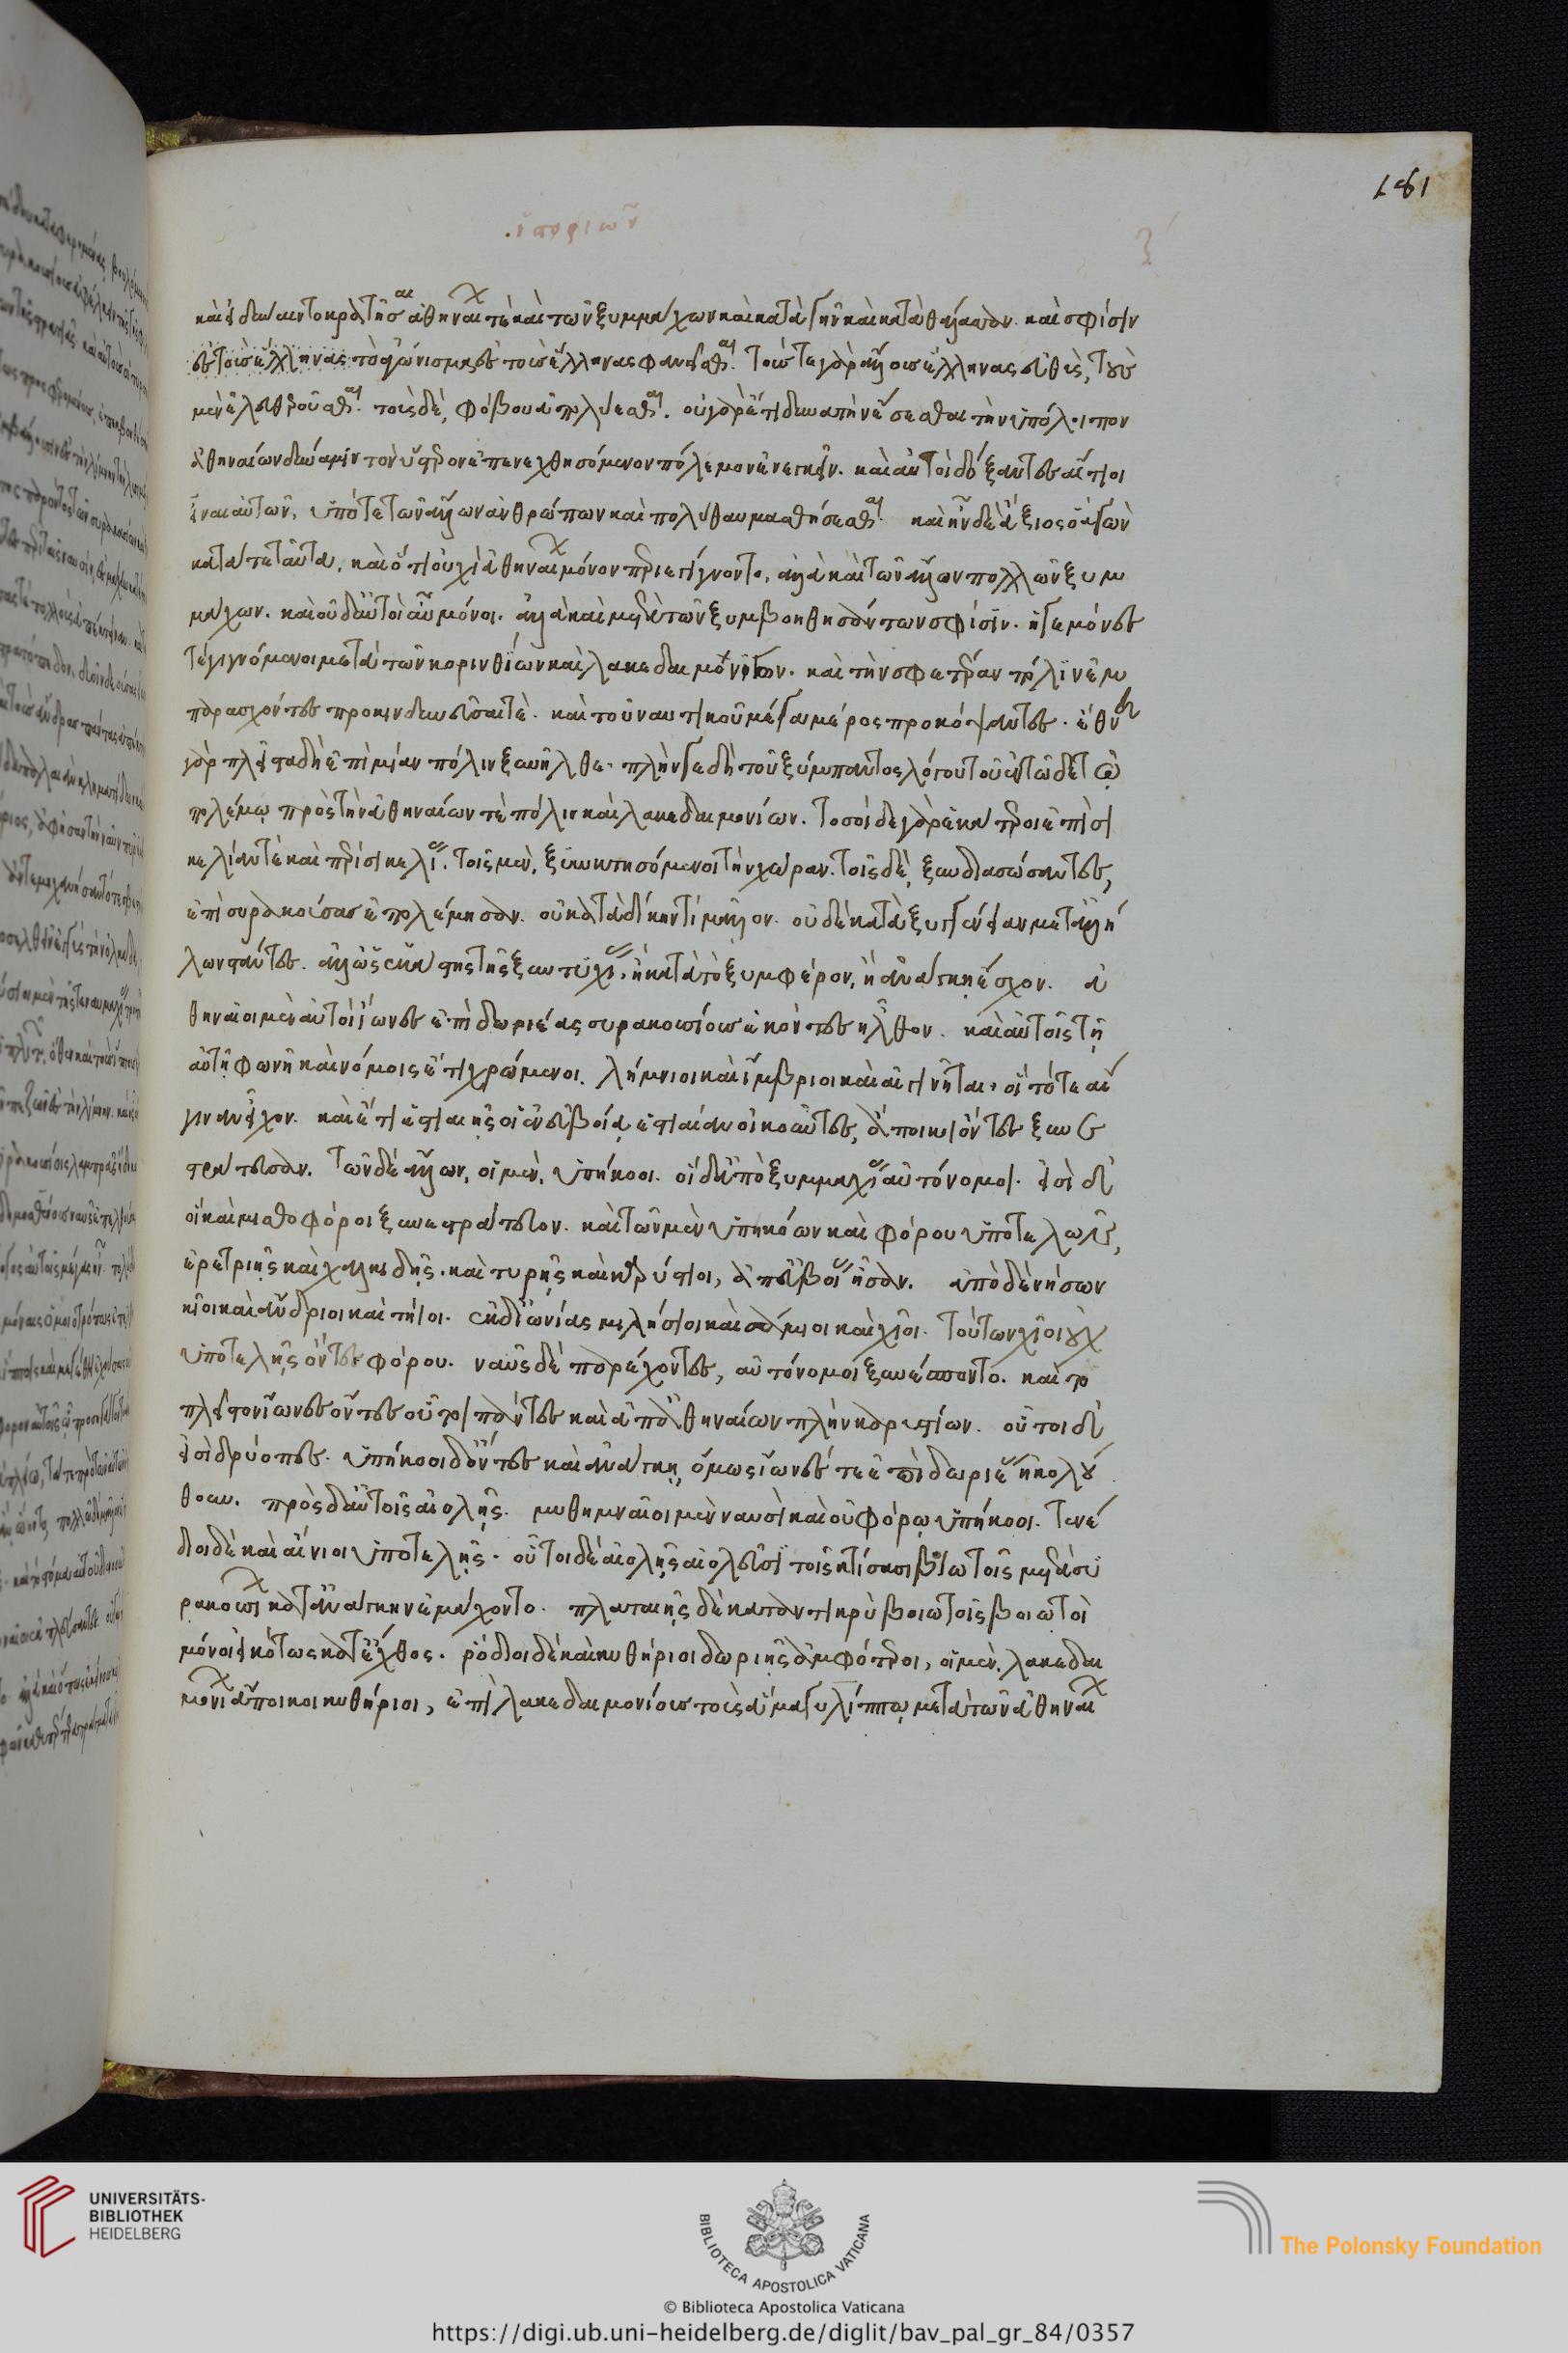 .ἱστοριῶν ζ
181
καὶ εἰ δύναιντο κρατῆσαι ἀθηναίων τὲ καὶ τῶν ξυμμάχων καὶ κατὰ γῆν καὶ κατὰ θάλασσαν. καὶ σφίσιν
ἐς τοὺς ἕλληνας τὸ ἀγώνισμα ἐς τοὺς ἕλληνας φανεῖσθαι. τούς τε γὰρ ἄλλους ἕλληνας εὐθὺς, τοὺς
μὲν ἐλευθεροῦσθαι. τοὺς δὲ, φόβου ἀπολύεσθαι. οὐ γὰρ ἔτι δυνατὴν ἔσεσθαι τὴν ὑπόλοιπον
ἀθηναίων δύναμιν τὸν ὕστερον ἐπενεχθησόμενον πόλεμον ἐνεγκεῖν. καὶ αὐτοὶ δόξαντες αἴτιοι
εἶναι αὐτῶν, ὑπό τε τῶν ἄλλων ἀνθρώπων καὶ πολὺ θαυμασθήσεσθαι. καὶ ἦν δὲ ἄξιος ὁ ἀγὼν
κατά τε ταῦτα, καὶ ὅτι οὐχὶ ἀθηναίων μόνον περιεγίγνοντο, ἀλλὰ καὶ τῶν ἄλλων πολλῶν ξυμ
μάχων. καὶ οὐδ' αὐτοὶ αὖ μόνοι. ἀλλὰ καὶ μετὰ τῶν ξυμβοηθησάντων σφίσιν. ἡγεμόνες
τέ γιγνόμενοι μετὰ τῶν κορινθίων καὶ λακεδαιμονίων. καὶ τὴν σφετέραν πόλιν ἐμ
παρασχόντες προκινδυνεῦσαί τὲ. καὶ τοῦ ναυτικοῦ μέγα μέρος προκόψαντες. ἔθνη
γὰρ πλεῖστα δὴ ἐπὶ μίαν πόλιν ξυνῆλθε. πλήν γε δὴ τοῦ ξύμπαντος λόγου τοῦ ἐν τῶδε τῶ
πολέμω πρὸς τὴν ἀθηναίων τὲ πόλιν καὶ λακεδαιμονίων. τοσοίδε γὰρ ἑκάτεροι ἐπὶ σι
κελίαν τὲ καὶ περὶ σικελίας. τοῖς μὲν, ξυγκτησόμενοι τὴν χώραν. τοῖς δὲ, ξυνδιασώσαντες,
ἐπὶ συρακούσας ἐπολέμησαν. οὐ κατὰ δίκην τὶ μᾶλλον. οὐδὲ κατὰ ξυγγένειαν μετ' ἀλλή
λων στάντες. ἀλλ' ὡς ἑκάστης τῆς ξυντυχίας, ἢ κατὰ τὸ ξυμφέρον, ἢ ἀνάγκη ἔσχον. ἀ
θηναῖοι μὲν αὐτοὶ ἴωνες ἐπὶ δωριέας συρακοσίους ἑκόντες ἦλθον. καὶ αὐτοῖς τῆ
αὐτῆ φωνῆ καὶ νόμοις ἔτι χρώμενοι. λήμνιοι καὶ ἴμβριοι καὶ αἰγινῆται. οἳ τότε αἴ
γιναν εἶχον. καὶ ἔτι ἑστιαιῆς οἱ ἐν εὐβοία ἑστίαιαν οἰκοῦντες, ἄποικοι ὄντες ξυνε
στράτευσαν. τῶν δὲ ἄλλων, οἱ μὲν, ὑπήκοοι. οἱ δ' ἀπὸ ξυμμαχίας αὐτόνομοι. εἰσὶ δὲ
οἳ καὶ μισθοφόροι ξυνεστράτευον. καὶ τῶν μὲν ὑπηκόων καὶ φόρου ὑποτελῶν,
ἐρετριῆς καὶ χαλκιδῆς. καὶ στυρῆς καὶ καρύστιοι, ἀπ' εὐβοίας ἦσαν. ἀπὸ δὲ νήσων
κεῖοι καὶ ἄνδριοι καὶ τήιοι. ἐκ δ' ἰωνίας μιλήσιοι καὶ σάμιοι καὶ χῖοι. τούτων χῖοι οὐχ
ὑποτελῆς ὄντες φόρου. ναῦς δὲ παρέχοντες, αὐτόνομοι ξυνέσποντο. καὶ τὸ
πλεῖστον ἴωνες ὄντες οὗτοι πάντες καὶ ἀπ' ἀθηναίων πλὴν καρυστίων. οὗτοι δὲ
εἰσὶ δρύοπες. ὑπήκοοι δ' ὄντες καὶ ἀνάγκη, ὅμως ἴωνές τε ἐπὶ δωριέας ἠκολού
θουν. πρὸς δ' αὐτοῖς αἰολῆς. μηθυμναῖοι μὲν ναυσὶ καὶ οὐ φόρω ὑπήκοοι. τενέ
διοι δὲ καὶ αἴνιοι ὑποτελῆς. οὗτοι δὲ αἰολῆς αἰολεῦσι τοῖς κτίσασι βοιωτοῖς μετὰ συ
ρακοσίων κατ' ἀνάγκην ἐμάχοντο. πλαταιῆς δὲ καταντικρὺ βοιωτοὶς βοιωτοὶ
μόνοι εἰκότως κατ' ἔχθος. ῥόδιοι δὲ καὶ κυθήριοι δωριῆς ἀμφότεροι, οἱ μὲν, λακεδαι
μονίων ἄποικοι κυθήριοι, ἐπὶ λακεδαιμονίους τοὺς ἅμα γυλίππω μετὰ τῶν ἀθηναίων
UNIVERSITÄTS-
BIBLIOTHEK
HEIDELBERG
BIBLIOTECA APOSTOLICA VATICANA
The Polonsky Foundation
© Biblioteca Apostolica Vaticana
https://digi.ub.uni-heidelberg.de/diglit/bav_pal_gr_84/0357